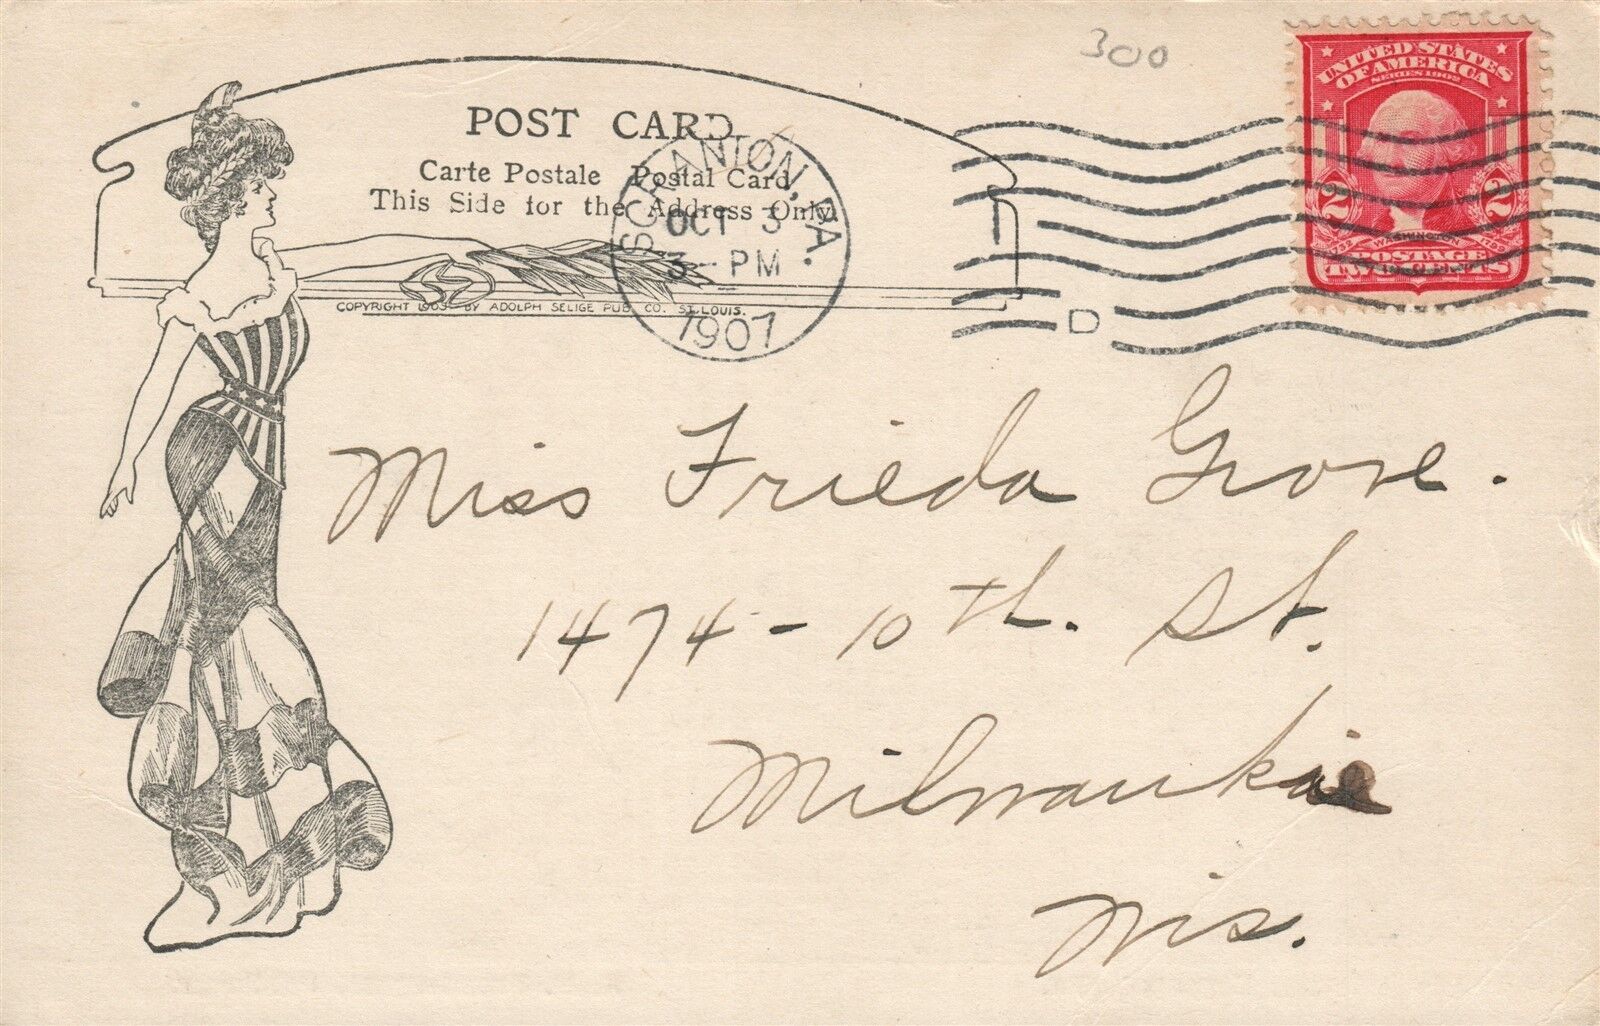 300
UNITED STATES
OF AMERICA
SERIES 1902
2 2
1732 WASHINGTON 1799
POSTAGE
TWO CENTS
POST CARD
Carte Postale Postal Card
This Side for the Address Only.
COPYRIGHT 1903 BY ADOLPH SELIGE PUB. CO. ST. LOUIS.
SCRANTON, PA.
OCT 3
3 - PM
1907
D
Miss Frieda Grove.
1474 - 10th. St.
Milwaukie
Wis.